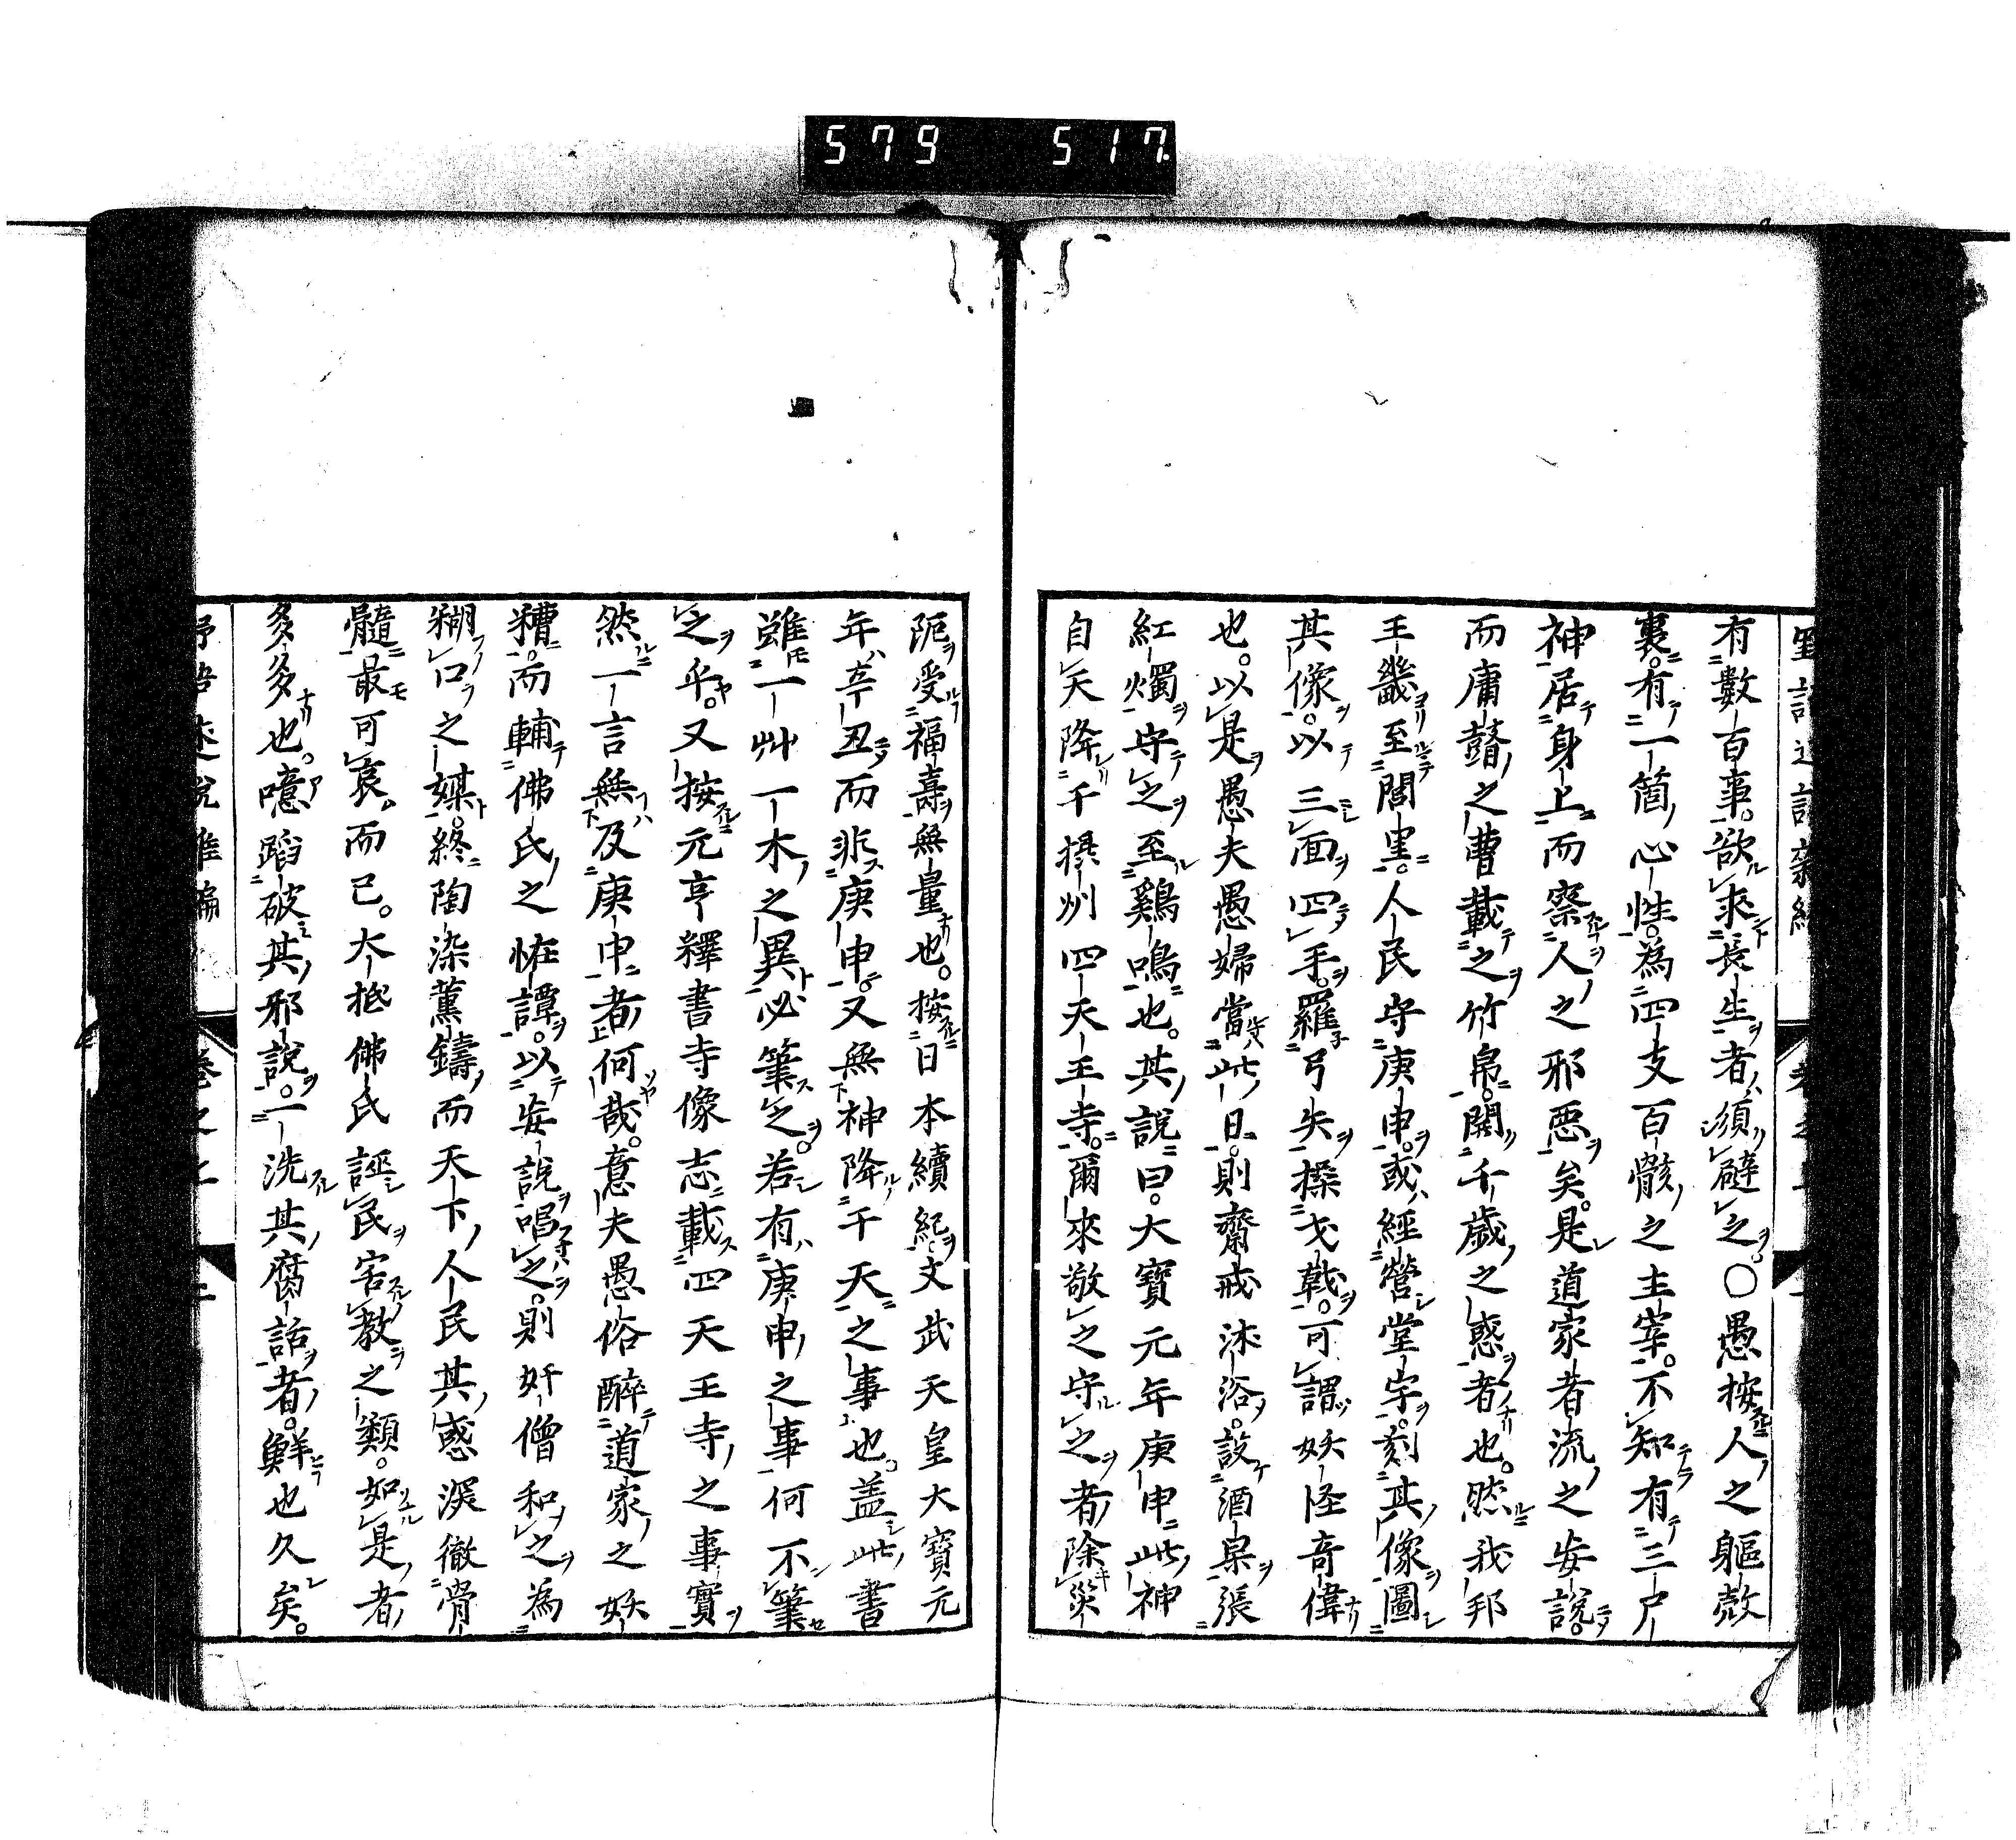 579 517
有數百事。欲求長生者須避之。○愚按人之軀殻
裏。有一箇心性。為四支百骸之主宰。不知有三尸
神居身上而察人之邪惡矣。是道家者流之妄說。
而庸瞽之曹載之竹帛。開千歲之惑者也。然我邦
王畿至閭里。人民守庚申。或經營堂宇。刻其像圖
其像。以三面四手。羅弓矢操戈戟。可謂妖怪奇偉
也。以是愚夫愚婦當此日。則齋戒沐浴。設酒杲張
紅燭守之至鷄鳴也。其說曰。大寶元年庚申此神
自天降于攝州四天王寺。爾來敬之守之者除災
阨受福壽無量也。按日本續紀文武天皇大寶元
年辛丑而非庚申。又無神降于天之事也。盖此書
雖一艸一木之異必筆之。若有庚申之事何不筆
之乎。又按元亨釋書寺像志載四天王寺之事實
然一言無及庚申者何哉。意夫愚俗醉道家之妖
糟。而輔佛氏之恠譚。以妄說唱之。則奸僧和之為
糊口之媒。終陶染薰鑄而天下人民其惑淚徹骨
髓最可哀而已。大抵佛氏誣民害教之類。如是者
多多也。噫蹈破其邪說。一洗其腐話者。鮮也久矣。